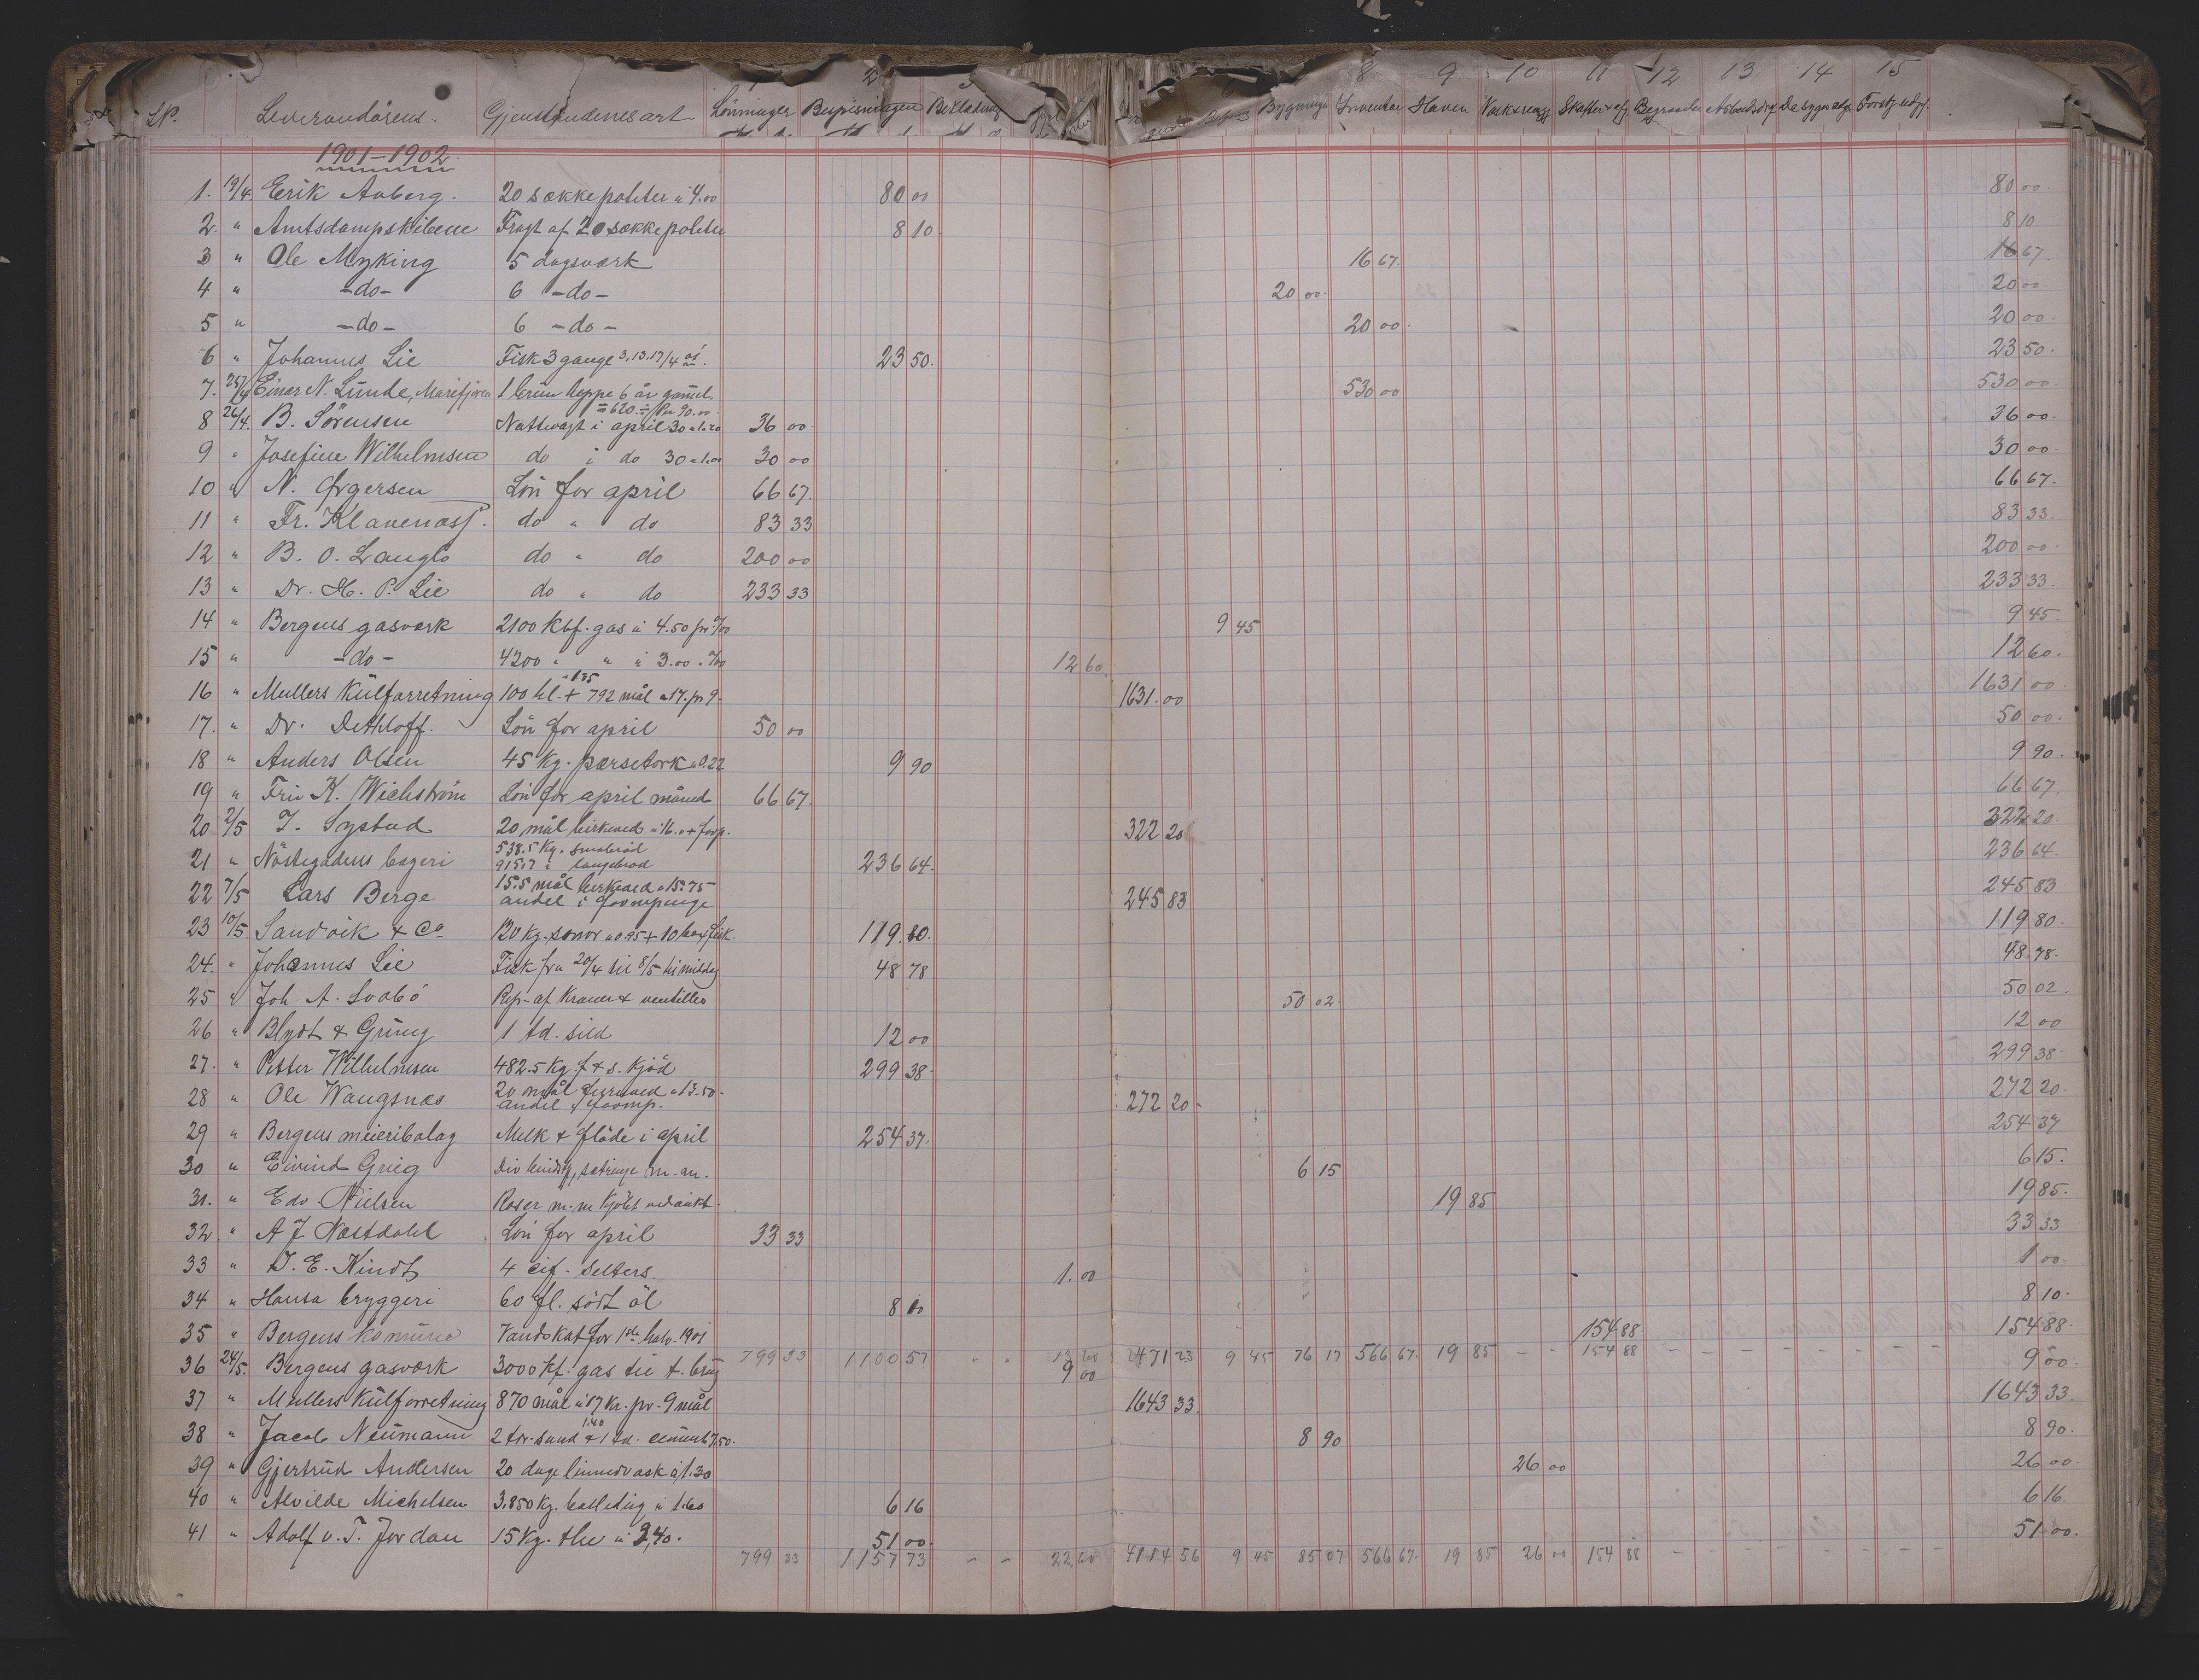 2 8 9 10 11 12 13 14 15
Leverandörens Gjenstandenes art Lönninger Bespisningen Beklædning Bygninge Inventar Haven Vask & rengj. Skatter & afg.
1901-1902
1. 19/4 Erik Aaberg. 20 sække poteter à 4.00 80 00 80 00
2. " Amtsdampskibene Fragt af 20 sække poteter 8 10 8 10
3 " Ole Myking 5 dagsværk 16 67. 16 67.
4 " -do- 6 -do- 20 00. 20 00.
5 " -do- 6 -do- 20 00. 20 00.
6 " Johannes Lie Fisk 3 gange 3, 13, 17/4 01. 23 50. 23 50.
7. 25/4 Einar N. Lunde, Marifjøren 1 teppe 6 år gamel. 530 00 530 00
= 620 90.00
8 26/4. B. Sörensen Nattevagt i april 30 à 1.20 36 00. 36 00.
9 " Josefine Wilhelmsen do i do 30 à 1.00 30 00 30 00.
10 " N. Lön for april 66 67. 66 67.
11 " Fr. Klavenæss. do " do 83 33 83 33.
12 " B. O. Langlo do " do 200 00 200 00.
13 " Dr. H. P. Lie do " do 233 33 233 33.
14 " Bergens gasværk 2100 Kbf. gas à 4.50 pr. 9 45 9 45.
15 " -do- 4200 " " à 3.00 12 60. 12 60.
16 " Mullers Külforretning 100 hl. + 792 mål à 17. pr 9. 1631.00 1631 00.
17. " Dr. Dethloff. Lön for april 50 00 50 00.
18 " Anders Olsen 45 Kg. pærsetorsk à 0.22 9 90 9 90.
19 " K. Wichström Lön for april måned 66 67. 66 67.
20 2/5 T. Systad 20 mål birkeved à 16.0 + 322 20 322 20.
21 " Nöstegadens bageri 538.5 Kg. surabröd 236 64. 236 64.
915.7 " langebröd
22 7/5 Lars Berge 15.5 mål birkeved à 15.75 245 83 245 83
andel i
23 10/5 Sandvik & Co. 120 Kg. smør à 0.95 + 119.80. 119 80.
24. " Johannes Lie Fisk fra 20/4 til 8/5 til middag 48 78 48 78.
25 " Joh. A. Svabö Rep. af Kraner & ventiller 50 02. 50 02.
26 " Blydt & Grung 1 td. sild 12 00 12 00
27. " Petter Wilhelmsen 482.5 Kg. f. & s. Kjöd 299 38. 299 38.
28 " Ole Wangsnæs 20 mål fureved à 13.50 272 20. 272 20.
andel i
29 " Bergens meieribolag Melk & flöde i april 254 37. 254 37
30 " Eivind Grieg Div m.m. 6 15 6 15.
31. " Edv. Nielsen Roser m.m. Kjöbt ved aukt. 19 85 19 85.
32. " A J Næstdahl Lön for april 33 33 33 33
33 " J. E. Kindt 4 selters. 1.00 1 00.
34 " Hansa bryggeri 60 fl. södt öl 8 10 8 10.
35 " Bergens Kommune Vandskat for 1ste halv. 1901 154 88. 154 88.
799 33 1100 57 " " 13 60 2471 23 9 45 76 17 566 67. 19 85 - - 154 88 - - - - - - - -
36 24/5. Bergens gasværk 3000 Kf. gas 9 00 9 00.
37 " Mullers Külforretning 870 mål à 17 Kr. pr. 9 mål 1643 33. 1643 33.
38 " Jacob Neumann 2 tdr. sand 1.40 & 1 td. cement 7.50. 8 90 8 90.
39 " Gjertrud Andersen 20 dage linnedvask à 1.30 26 00 26 00.
40 " Alvilde Michelsen 3.850 Kg. à 1.60 6 16 6 16.
41 " Adolf v. T. Jordan 15 Kg. the à 3,40. 51 00. 51 00.
799 33 1157 73 - - 22,60 4114 56 9 45 85 07 566 67. 19 85 26 00 154 88 - - - - - - - -